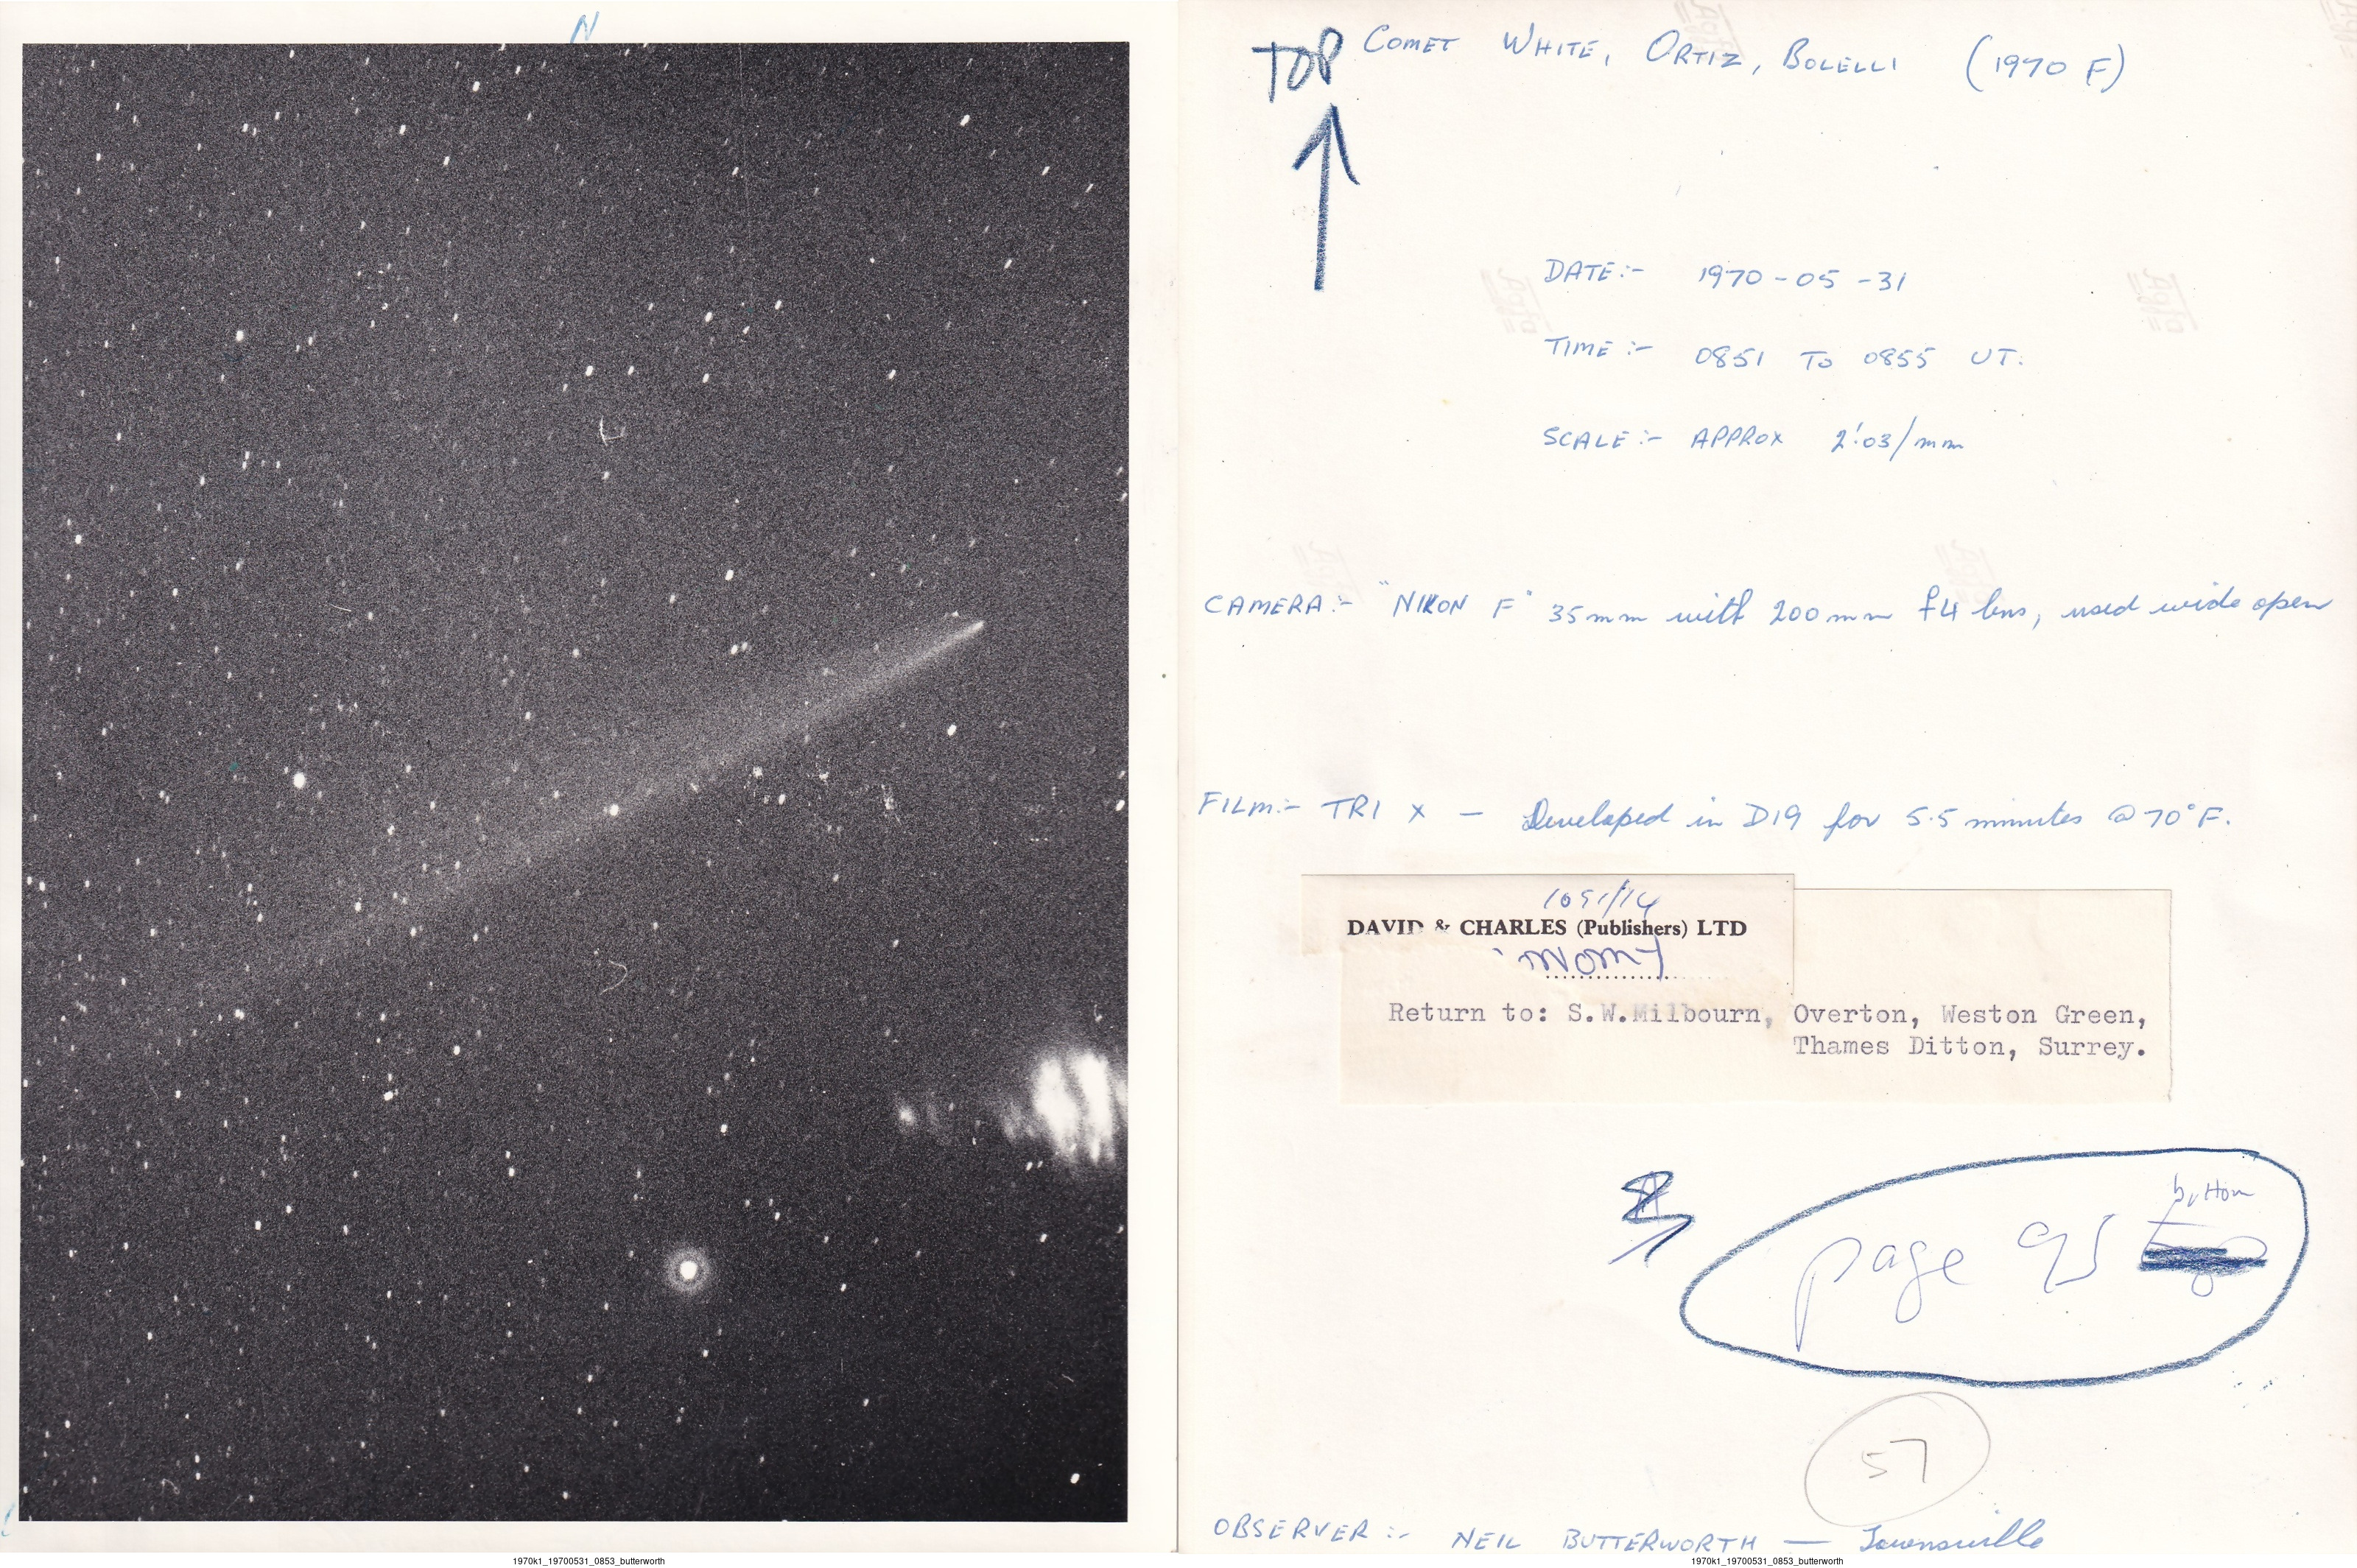 N
TOP
COMET WHITE, ORTIZ, BOLELLI (1970 F)
DATE:- 1970-05-31
TIME:- 0851 TO 0855 UT.
SCALE:- APPROX 2!03/mm
CAMERA:- "NIKON F" 35mm with 200mm f4 lens, used wide open
FILM:- TRI X — Developed in D19 for 5.5 minutes @ 70°F.
DAVID & CHARLES (Publishers) LTD
Return to: S.W.Milbourn, Overton, Weston Green,
Thames Ditton, Surrey.
bottom
page 95
57
OBSERVER:- NEIL BUTTERWORTH — Townsville
1970k1_19700531_0853_butterworth
1970k1_19700531_0853_butterworth